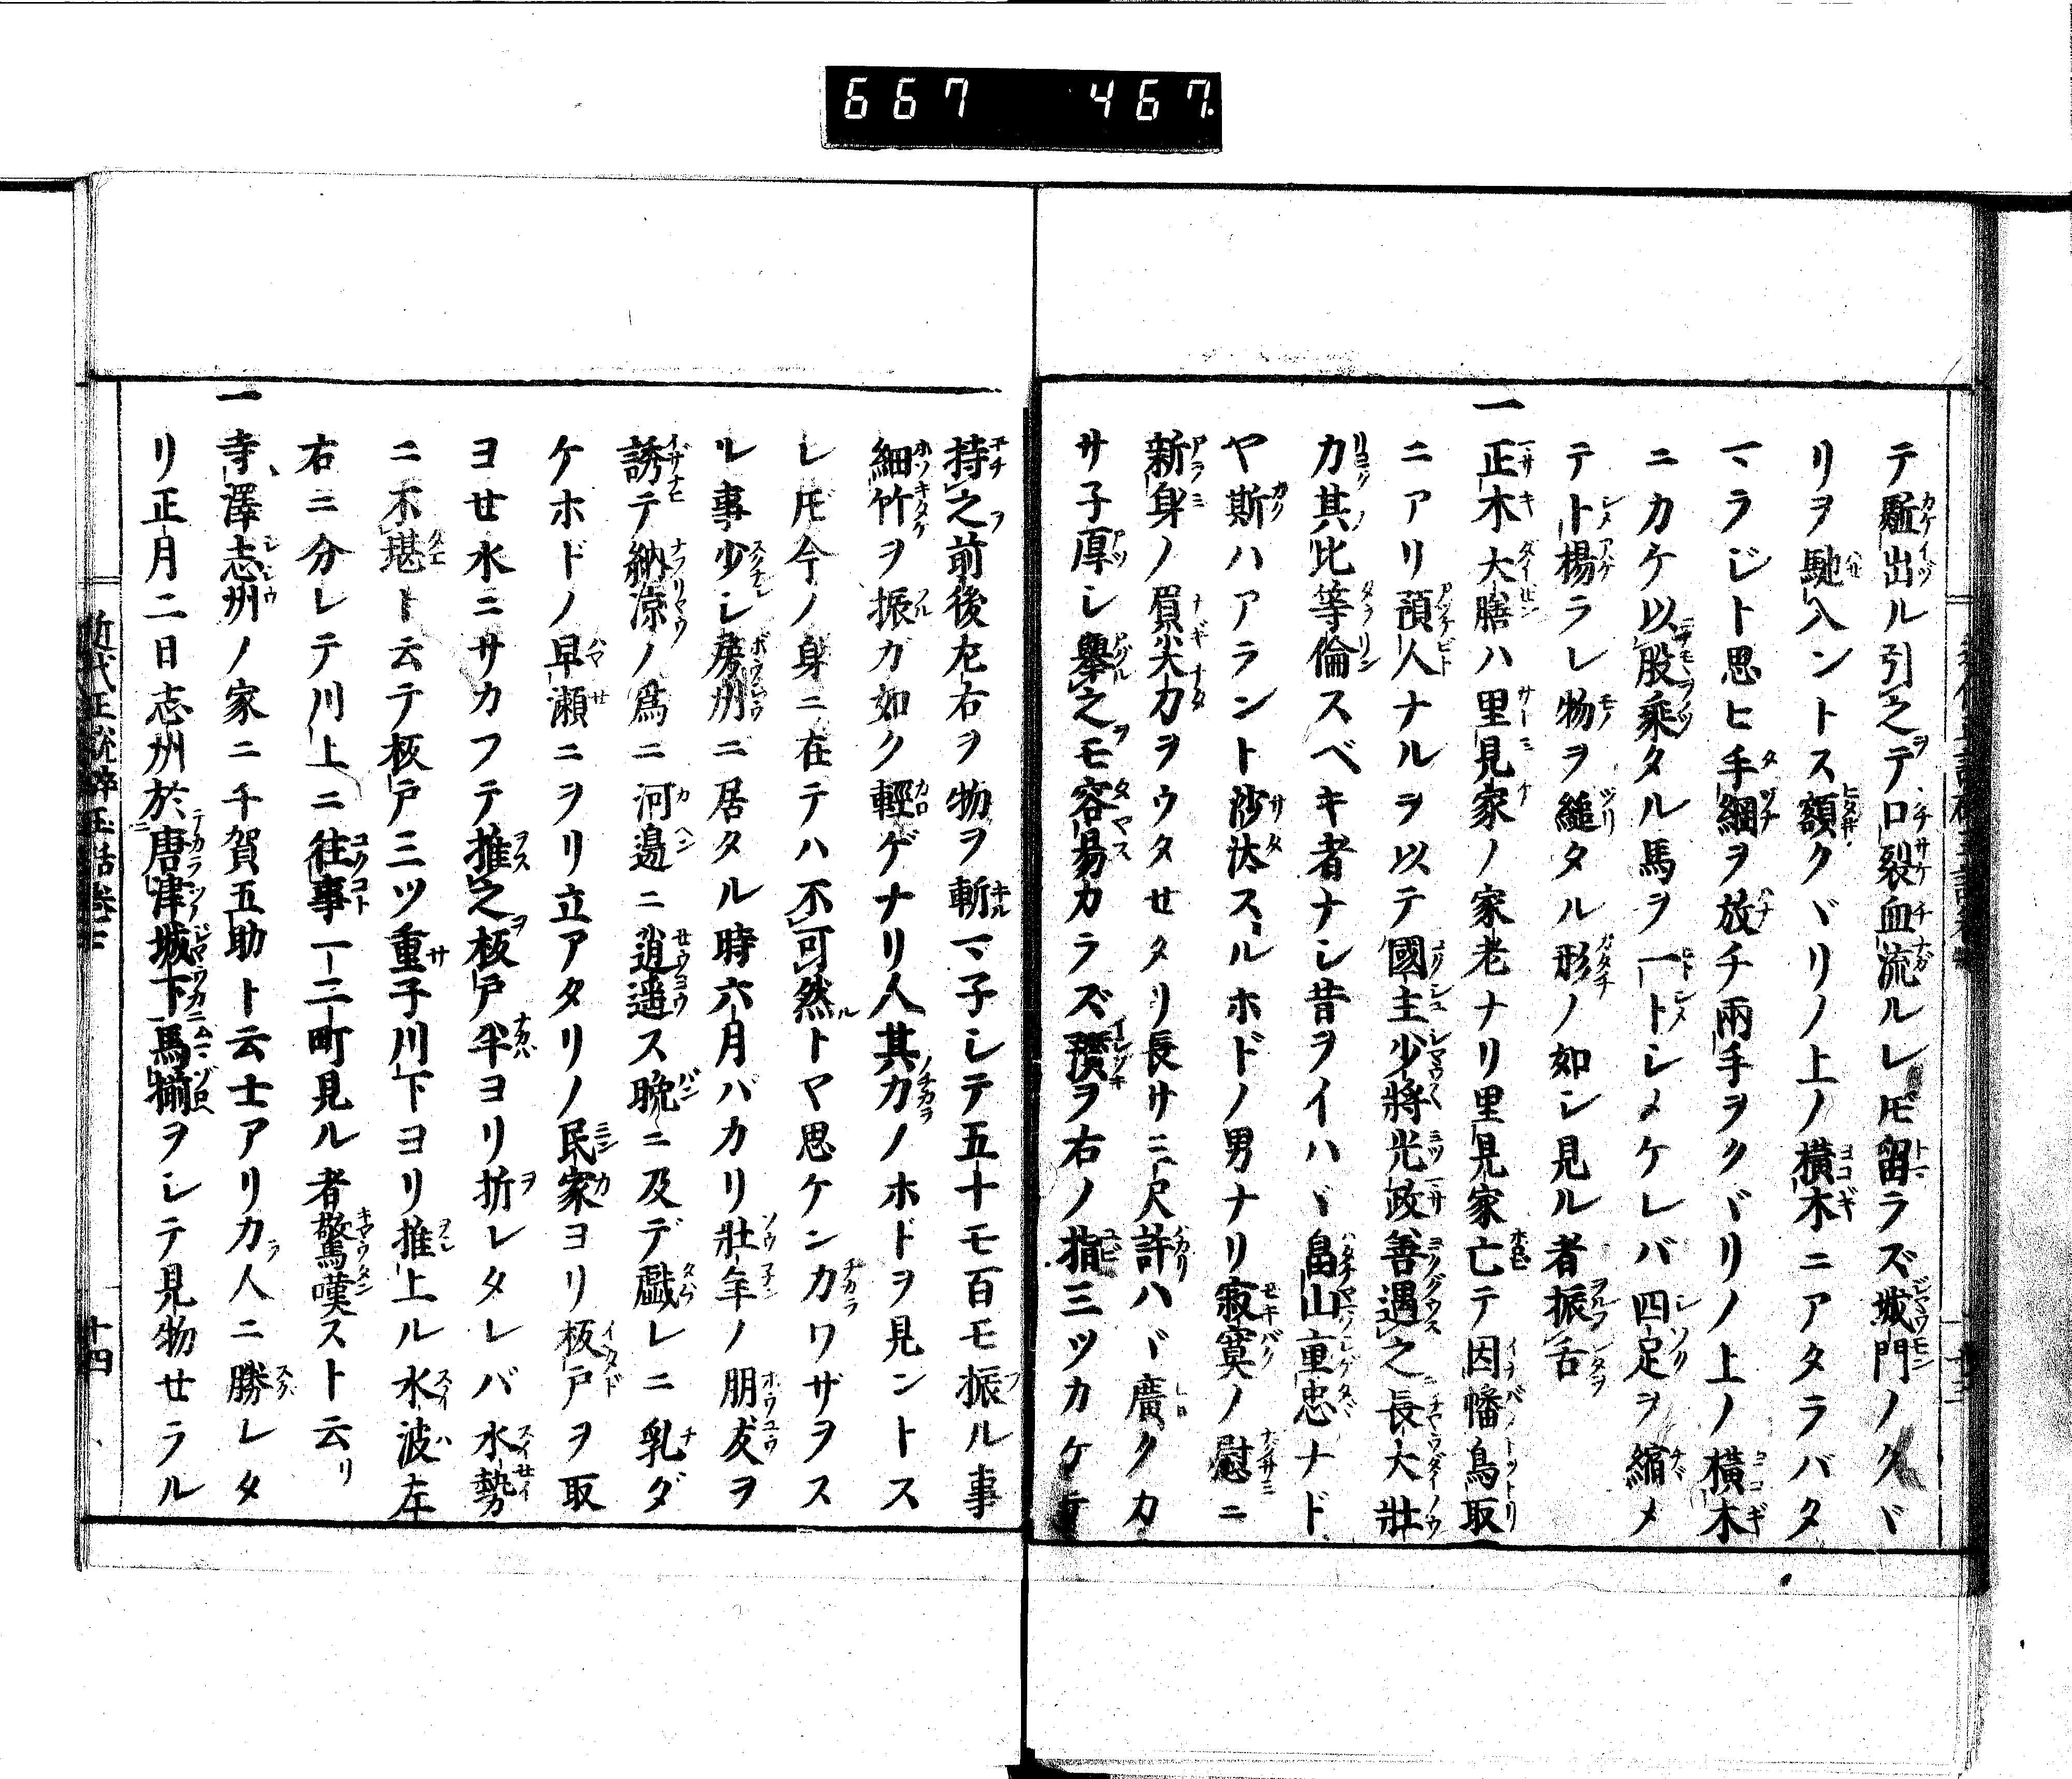 667 467
テ駈出ル引之テ口裂血流ルレ𪜈留ラズ城門ノクヾ
リヲ馳入ントス額クヾリノ上ノ横木ニアタラバタ
マラジト思ヒ手綱ヲ放チ兩手ヲクヾリノ上ノ横木
ニカケ以股乘タル馬ヲ一トシメケレバ四足ヲ縮メ
テト揚ラレ物ヲ縋タル形ノ如シ見ル者振舌
一正木大膳ハ里見家ノ家老ナリ里見家亡テ因幡鳥取
ニアリ預人ナルヲ以テ國主少將光政善遇之長大壯
力其比等倫スベキ者ナシ昔ヲイハヾ畠山重忠ナド
ヤ斯ハアラント沙汰スルホドノ男ナリ寂寞ノ慰ニ
新身ノ眉尖刀ヲウタせタリ長サ二尺許ハヾ廣クカ
サ子厚シ擧之モ容易カラズ䥫ヲ右ノ指三ツカケテ
持之前後左右ヲ物ヲ斬マ子シテ五十モ百モ振ル事
細竹ヲ振カ如ク輕ゲナリ人其力ノホドヲ見ントス
レ𪜈今ノ身ニ在テハ不可然トヤ思ケン力ワザヲス
ル事少シ房州ニ居タル時六月バカリ壯年ノ朋友ヲ
誘テ納涼ノ爲ニ河邉ニ逍遥ス晩ニ及デ戯レニ乳ダ
ケホドノ早瀬ニヲリ立アタリノ民家ヨリ板戸ヲ取
ヨせ水ニサカフテ推之板戸半ヨリ折レタレバ水勢
ニ不堪ト云テ板戸三ツ重子川下ヨリ推上ル水波左
右ニ分レテ川上ニ往事一二町見ル者驚嘆スト云リ
一寺澤志州ノ家ニ千賀五助ト云士アリカ人ニ勝レタ
リ正月二日志州於唐津城下馬揃ヲシテ見物せラル
近代正説砕玉話巻三
十四